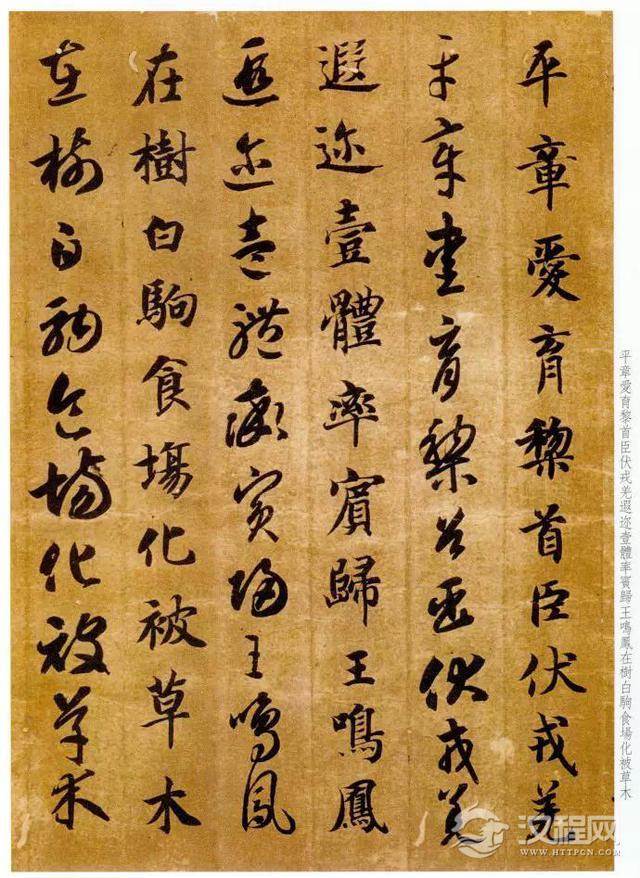 平章愛育黎首臣伏戎羌
平章愛育黎首臣伏戎羌
遐迩壹體率賓歸王鳴鳳
遐迩壹體率賓歸王鳴鳳
在樹白駒食場化被草木
在樹白駒食場化被草木
平章愛育黎首臣伏戎羌遐迩壹體率賓歸王鳴鳳在樹白駒食場化被草木
汉程网
WWW.HTTPCN.COM